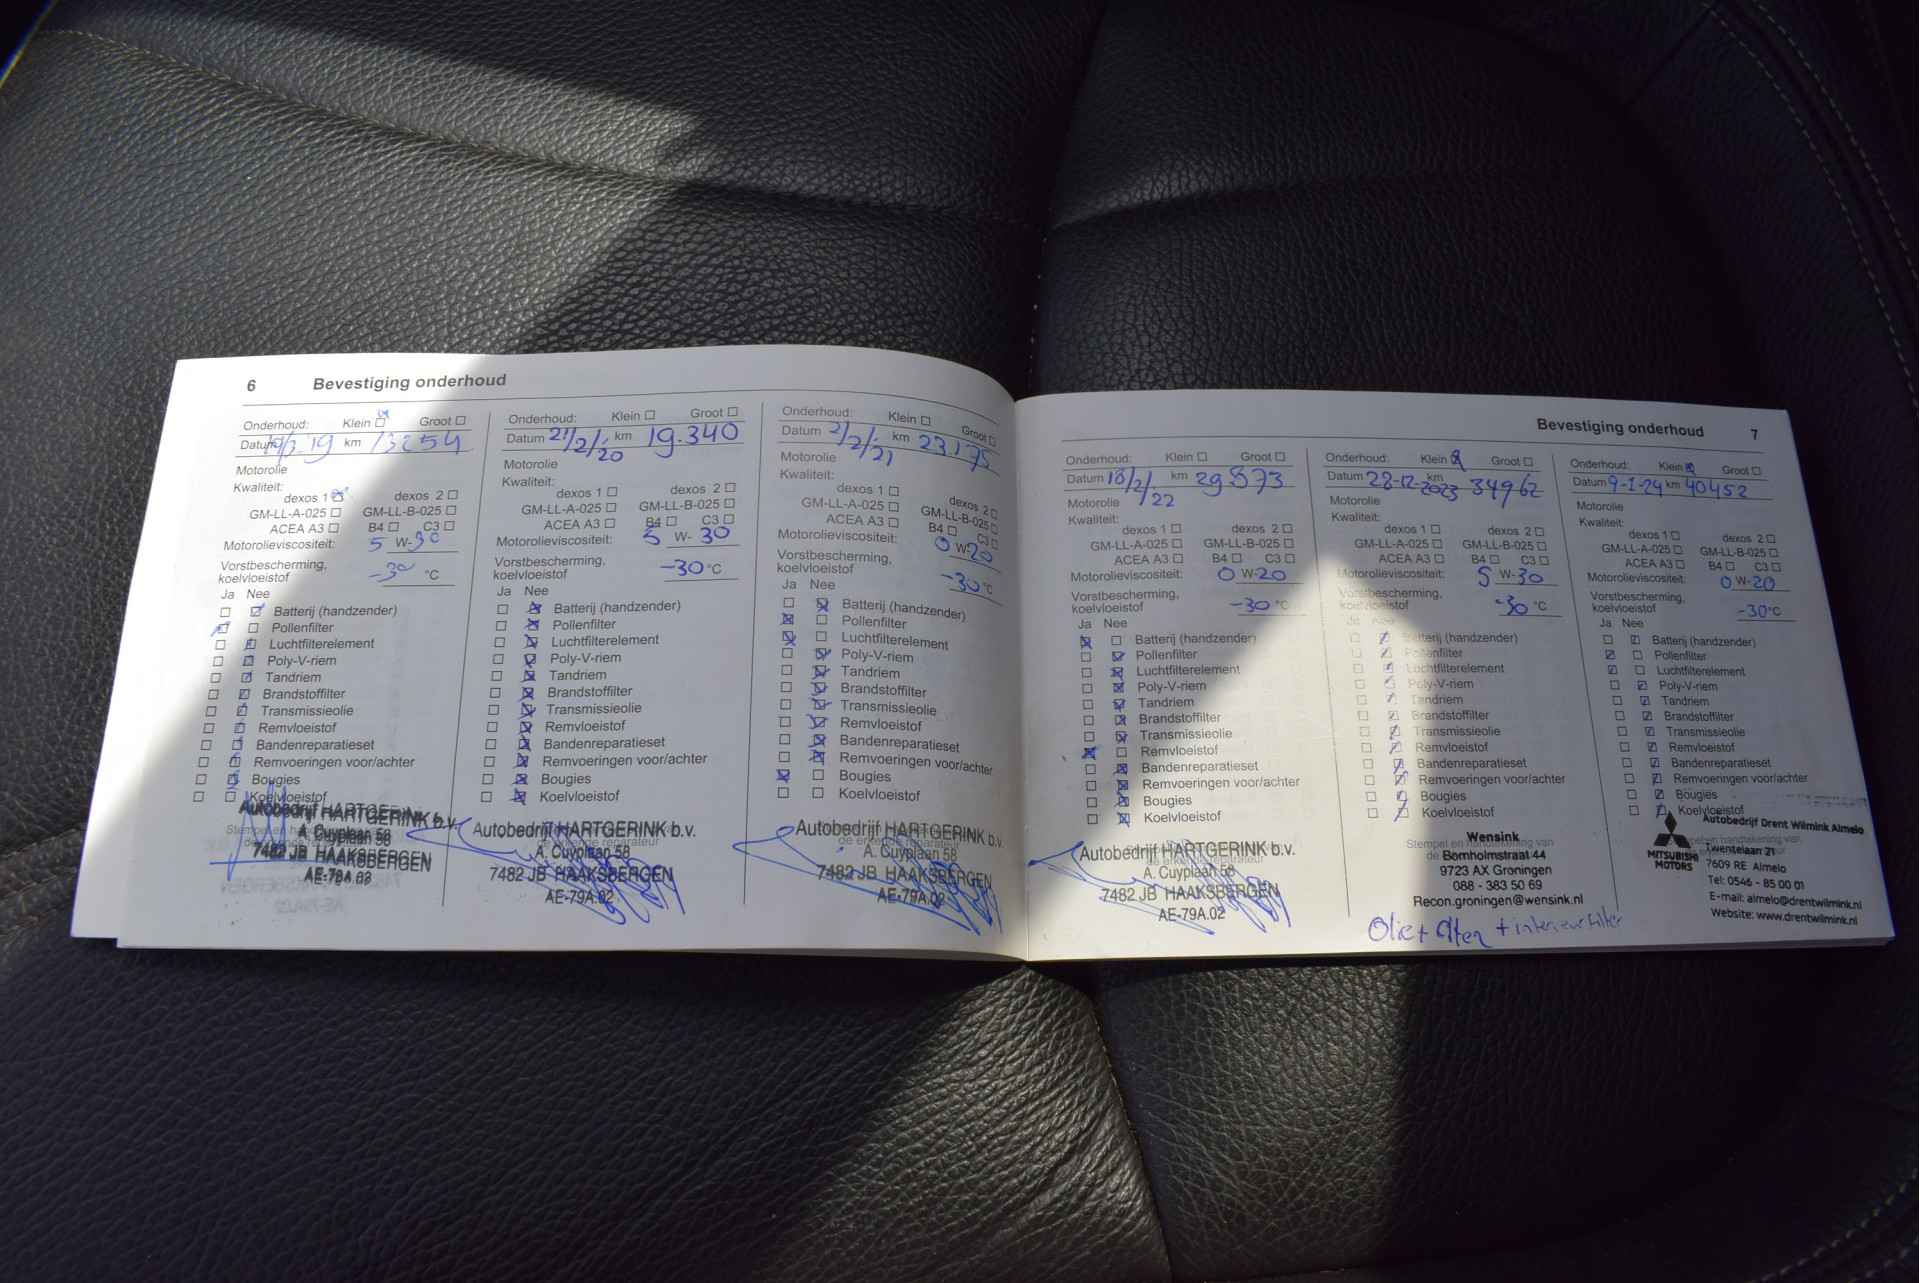 6 Bevestiging onderhoud
Onderhoud: Klein Groot
Datum km 13254
Motorolie
Kwaliteit:
dexos 1 dexos 2
GM-LL-A-025 GM-LL-B-025
ACEA A3 B4 C3
Motorolieviscositeit: 5 W-30
Vorstbescherming,
koelvloeistof -30 °C
Ja Nee
Batterij (handzender)
Pollenfilter
Luchtfilterelement
Poly-V-riem
Tandriem
Brandstoffilter
Transmissieolie
Remvloeistof
Bandenreparatieset
Remvoeringen voor/achter
Bougies
Koelvloeistof
Autobedrijf HARTGERINK b.v.
A. Cuyplaan 58
7482 JB HAAKSBERGEN
AE-79A.02
Onderhoud: Klein Groot
Datum 21/2/20 km 19.340
Motorolie
Kwaliteit:
dexos 1 dexos 2
GM-LL-A-025 GM-LL-B-025
ACEA A3 B4 C3
Motorolieviscositeit: 5 W-30
Vorstbescherming,
koelvloeistof -30 °C
Ja Nee
Batterij (handzender)
Pollenfilter
Luchtfilterelement
Poly-V-riem
Tandriem
Brandstoffilter
Transmissieolie
Remvloeistof
Bandenreparatieset
Remvoeringen voor/achter
Bougies
Koelvloeistof
Autobedrijf HARTGERINK b.v.
de erkende reparateur
A. Cuyplaan 58
7482 JB HAAKSBERGEN
AE-79A.02
Onderhoud: Klein Groot
Datum 2/2/21 km 23.175
Motorolie
Kwaliteit:
dexos 1 dexos 2
GM-LL-A-025 GM-LL-B-025
ACEA A3 B4 C3
Motorolieviscositeit: 0 W-20
Vorstbescherming,
koelvloeistof -30 °C
Ja Nee
Batterij (handzender)
Pollenfilter
Luchtfilterelement
Poly-V-riem
Tandriem
Brandstoffilter
Transmissieolie
Remvloeistof
Bandenreparatieset
Remvoeringen voor/achter
Bougies
Koelvloeistof
Autobedrijf HARTGERINK b.v.
de erkende reparateur
A. Cuyplaan 58
7482 JB HAAKSBERGEN
AE-79A.02
Bevestiging onderhoud 7
Onderhoud: Klein Groot
Datum 18/2/22 km 29873
Motorolie
Kwaliteit:
dexos 1 dexos 2
GM-LL-A-025 GM-LL-B-025
ACEA A3 B4 C3
Motorolieviscositeit: 0 W-20
Vorstbescherming,
koelvloeistof -30 °C
Ja Nee
Batterij (handzender)
Pollenfilter
Luchtfilterelement
Poly-V-riem
Tandriem
Brandstoffilter
Transmissieolie
Remvloeistof
Bandenreparatieset
Remvoeringen voor/achter
Bougies
Koelvloeistof
Autobedrijf HARTGERINK b.v.
de erkende reparateur
A. Cuyplaan 58
7482 JB HAAKSBERGEN
AE-79A.02
Onderhoud: Klein Groot
Datum 28-12-2023 km 34962
Motorolie
Kwaliteit:
dexos 1 dexos 2
GM-LL-A-025 GM-LL-B-025
ACEA A3 B4 C3
Motorolieviscositeit: 5 W-30
Vorstbescherming,
koelvloeistof -30 °C
Ja Nee
Batterij (handzender)
Pollenfilter
Luchtfilterelement
Poly-V-riem
Tandriem
Brandstoffilter
Transmissieolie
Remvloeistof
Bandenreparatieset
Remvoeringen voor/achter
Bougies
Koelvloeistof
Wensink
Stempel en handtekening van
Bornholmstraat 44
9723 AX Groningen
088 - 383 50 69
Recon.groningen@wensink.nl
Olie + filter + interieurfilter
Onderhoud: Klein Groot
Datum 9-1-24 km 40452
Motorolie
Kwaliteit:
dexos 1 dexos 2
GM-LL-A-025 GM-LL-B-025
ACEA A3 B4 C3
Motorolieviscositeit: 0 W-20
Vorstbescherming,
koelvloeistof -30 °C
Ja Nee
Batterij (handzender)
Pollenfilter
Luchtfilterelement
Poly-V-riem
Tandriem
Brandstoffilter
Transmissieolie
Remvloeistof
Bandenreparatieset
Remvoeringen voor/achter
Bougies
Koelvloeistof
MITSUBISHI
MOTORS
Autobedrijf Drent Wilmink Almelo
Twentelaan 21
7609 RE Almelo
Tel: 0546 - 85 00 01
E-mail: almelo@drentwilmink.nl
Website: www.drentwilmink.nl